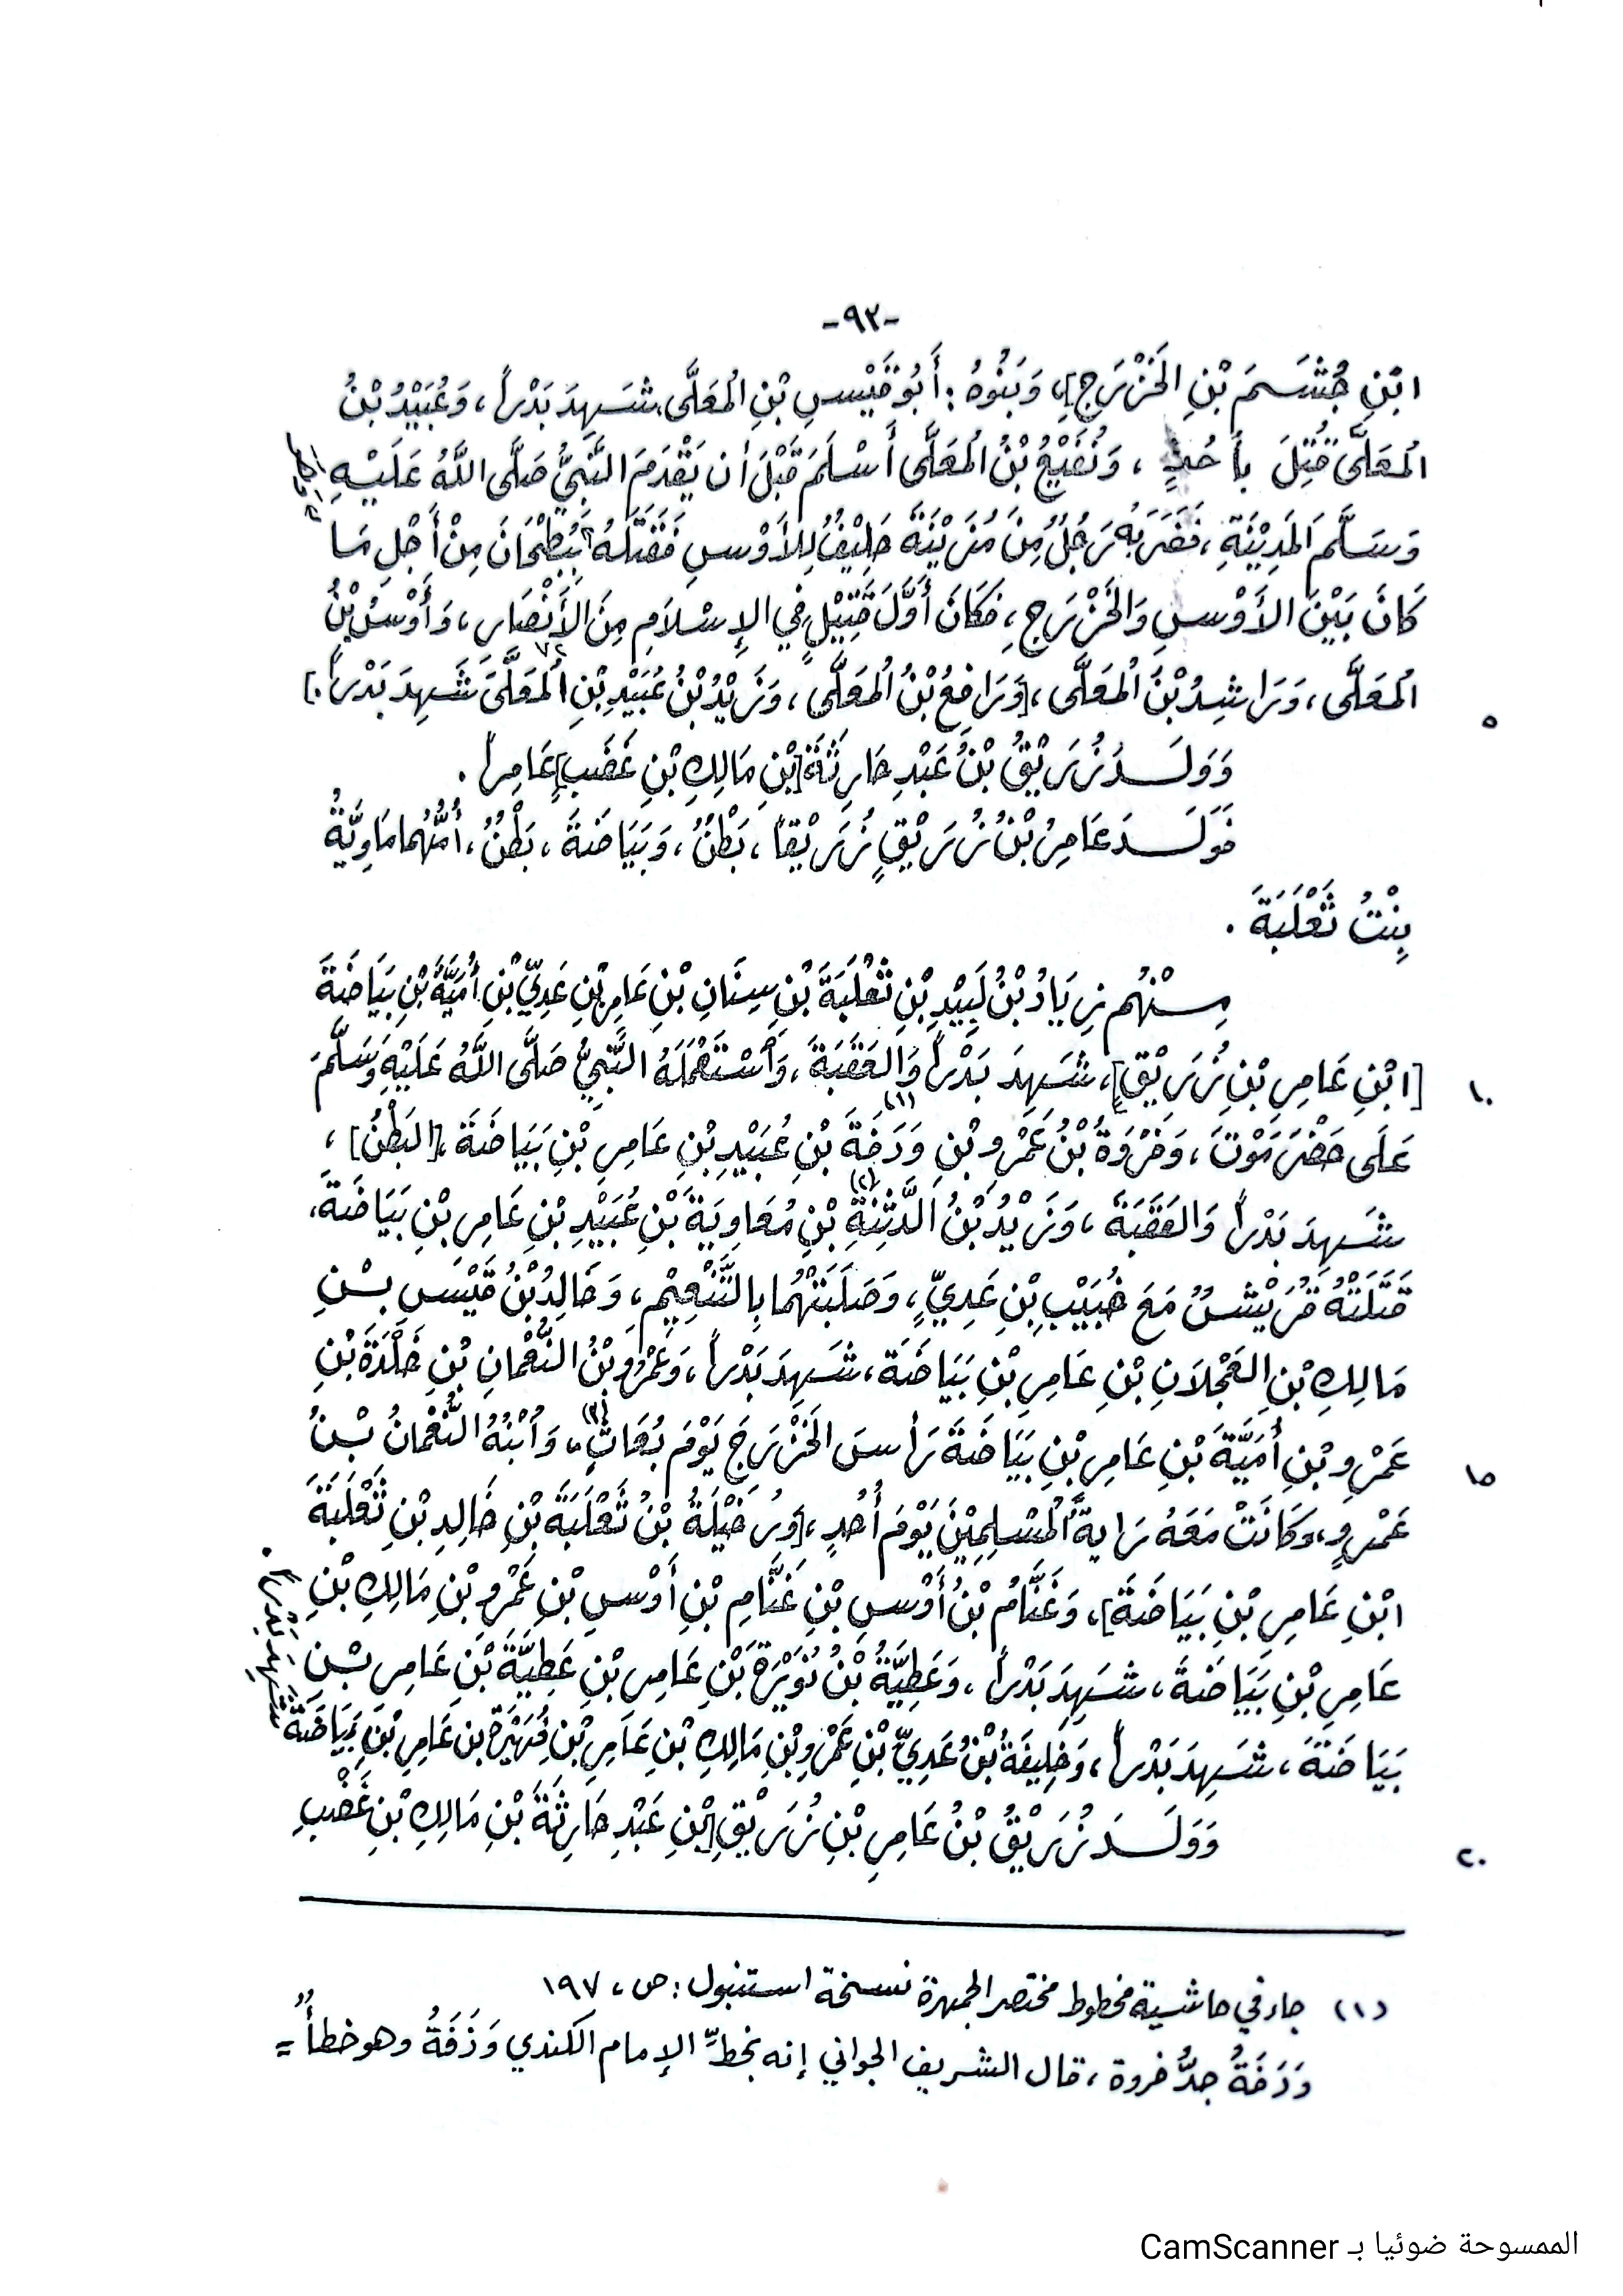 -٩٢-
ابْنِ جُشَمَ بْنِ الخَزْرَجِ]، وَبَنُوهُ: أَبُو قَيْسِ بْنِ المُعَلَّى شَهِدَ بَدْراً، وَعُبَيْدُ بْنُ
المُعَلَّى قُتِلَ بِأُحُدٍ، وَنُفَيْعُ بْنُ المُعَلَّى أَسْلَمَ قَبْلَ أن يَقْدَمَ النَّبِيُّ صَلَّى اللَّهُ عَلَيْهِ
وَسَلَّمَ المَدِيْنَةِ، فَضَرَبَهُ رَجُلٌ مِنْ مُزَيْنَةَ حَلِيْفٌ لِلأَوْسِ فَقَتَلَهُ بِبُطْحَانَ مِنْ أَجْلِ مَا
كَانَ بَيْنَ الأَوْسِ وَالخَزْرَجِ، فَكَانَ أَوَّلَ قَتِيْلٍ فِي الإِسْلاَمِ مِنَ الأَنْصَارِ، وَأَوْسُ بْنُ
المُعَلَّى، وَرَاشِدُ بْنُ المُعَلَّى، [وَرَافِعُ بْنُ المُعَلَّى، وَزَيْدُ بْنُ عُبَيْدِ بْنِ المُعَلَّى شَهِدَ بَدْراً.]
٥
وَوَلَدَ زُرَيْقُ بْنُ عَبْدِ حَارِثَةَ [بْنِ مَالِكِ بْنِ غَضَبٍ] عَامِراً.
فَوَلَدَ عَامِرُ بْنُ زُرَيْقٍ زُرَيْقاً، بَطْنٌ، وَبَيَاضَةَ، بَطْنٌ، أُمُّهُما مَاوِيَّةُ
بِنْتُ ثَعْلَبَةَ.
مِنْهُم زِيَادُ بْنُ لَبِيْدِ بْنِ ثَعْلَبَةَ بْنِ سِنَانِ بْنِ عَامِرِ بْنِ عَدِيِّ بْنِ أُمَيَّةَ بْنِ بَيَاضَةَ
[ابْنِ عَامِرِ بْنِ زُرَيْقٍ]، شَهِدَ بَدْراً وَالعَقَبَةَ، وَاسْتَعْمَلَهُ النَّبِيُّ صَلَّى اللَّهُ عَلَيْهِ وَسَلَّمَ
١٠
عَلَى حَضْرَمَوْتَ، وَفَرْوَةُ بْنُ عَمْرِو بْنِ وَدَفَةَ (١) بْنِ عُبَيْدِ بْنِ عَامِرِ بْنِ بَيَاضَةَ، [البَطْنُ]،
شَهِدَ بَدْراً وَالعَقَبَةَ، وَزَيْدُ بْنُ الدَّثِنَةِ (٢) بْنِ مُعَاوِيَةَ بْنِ عُبَيْدِ بْنِ عَامِرِ بْنِ بَيَاضَةَ،
قَتَلَتْهُ قُرَيْشٌ مَعَ خُبَيْبِ بْنِ عَدِيٍّ، وَصَلَبَتْهُما بِالتَّنْعِيْمِ، وَخَالِدُ بْنُ قَيْسِ بْنِ
مَالِكِ بْنِ العَجْلاَنِ بْنِ عَامِرِ بْنِ بَيَاضَة، شَهِدَ بَدْراً، وَعَمْرُو بْنُ النُّعْمَانِ بْنِ خَلْدَةَ بْنِ
عَمْرِو بْنِ أُمَيَّةَ بْنِ عَامِرِ بْنِ بَيَاضَةَ رَأسَ الخَزْرَجَ يَوْمَ بُعَاثٍ (٣)، وَابْنُهُ النُّعْمَانُ بْنُ
١٥
عَمْرٍو، وَكَانَتْ مَعَهُ رَايةُ المُسْلِمِيْنَ يَوْمَ أُحُدٍ، [وَرُخَيْلَةُ بْنُ ثَعْلَبَةَ بْنِ خَالِدِ بْنِ ثَعْلَبَةَ
ابْنِ عَامِرِ بْنِ بَيَاضَةَ]، وَغَنَّامُ بْنُ أَوْسِ بْنِ غَنَّامِ بْنِ أَوْسِ بْنِ عَمْرِو بْنِ مَالِكِ بْنِ
عَامِرِ بْنِ بَيَاضَةَ، شَهِدَ بَدْراً، وَعَطِيَّةُ بْنُ نُوَيْرَةَ بْنِ عَامِرِ بْنِ عَطِيَّةَ بْنِ عَامِرِ بْنِ
بَيَاضَةَ، شَهِدَ بَدْراً، وَخَلِيفَةُ بْنُ عَدِيِّ بْنِ عَمْرِو بْنِ مَالِكِ بْنِ عَامِرِ بْنِ فُهَيْرَةَ بن عَامِرِ بْنِ بَيَاضَةَ
شَهِدَ بَدْراً.
وَوَلَدَ زُرَيْقُ بْنُ عَامِرِ بْنِ زُرَيْقِ [بْنِ عَبْدِ حَارِثَةَ بْنِ مَالِكِ بْنِ غَضْبِ
٢٠
(١) جاء في حاشية مخطوط مختصر الجمهرة نسخة استنبول: ص، ١٩٧
وَدَفَةُ جدُّ فروة، قال الشريف الجواني إنه بخطِّ الإمام الكندي وَذَفَةُ وهو خطأٌ =
الممسوحة ضوئيا بـ CamScanner